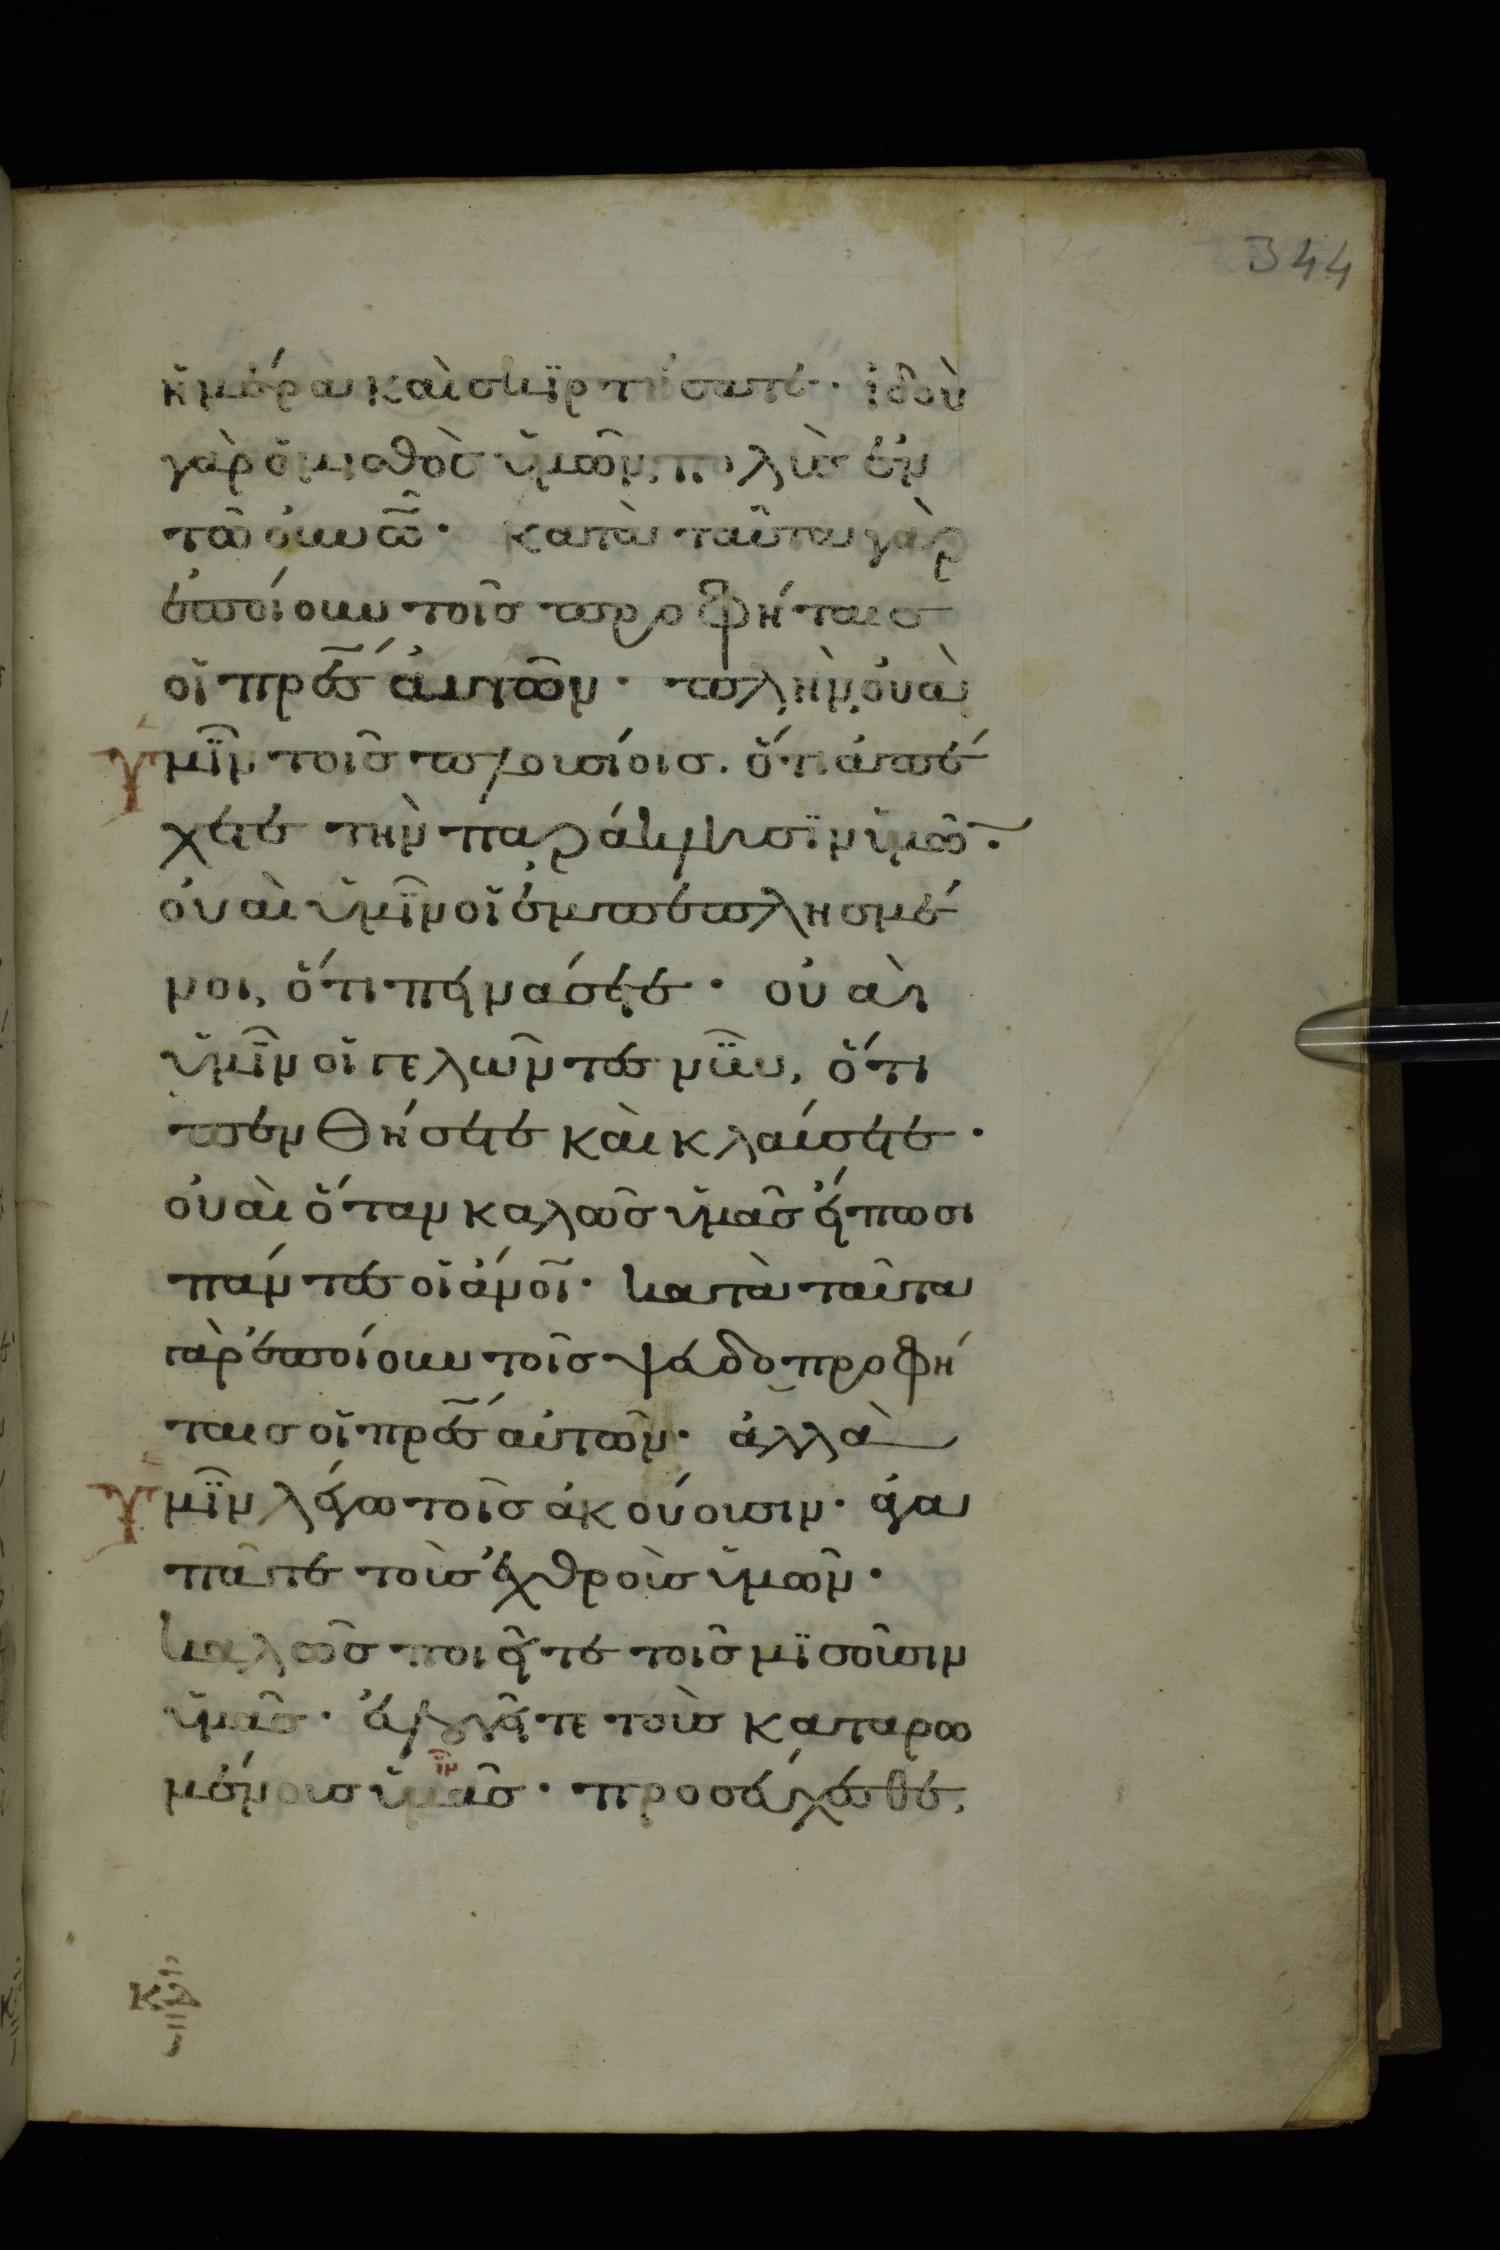 344
ἡμέρα καὶ σκϊρτήσατε· ἰδοὺ
γὰρ ὁ μισθὸς ὑμῶν, πολὺς ἐν
τῶ οὐνῶ· κατὰ ταῦτα γὰρ
ἐποίουν τοῖς προφήταις
οἱ πρ̅ε̅ς αὐτῶν· πλὴν, οὐαὶ
ὑμῖν τοῖς πλουσίοις. ὅτι ἀπέ
χετε τὴν παράκλησϊν ὑμῶ̅·
οὐαὶ ὑμῖν οἱ ἐμπεπλησμέ
νοι, ὅτι πεινάσετε· οὐαὶ
ὑμῖν οἱ γελῶντες νῦν, ὅτι
πενθήσετε καὶ κλαύσετε·
οὐαὶ ὅταν καλῶς ὑμᾶς εἴπωσι
πάντες οἱ ἄνοι̅· κατὰ ταῦτα
γὰρ ἐποίουν τοῖς ψευδοπροφή
ταις οἱ πρ̅ε̅ς αὐτῶν· ἀλλὰ
ὑμῖν λέγω τοῖς ἀκούουσιν· ἀγα
πᾶτε τοὺς ἐχθροὺς ὑμῶν·
καλῶς ποιεῖτε τοῖς μϊσοῦσιν
ὑμᾶς· εὐλογεῖτε τοὺς καταρω
μένους ὑμᾶς· προσεύχεσθε,
ῖν
κδ